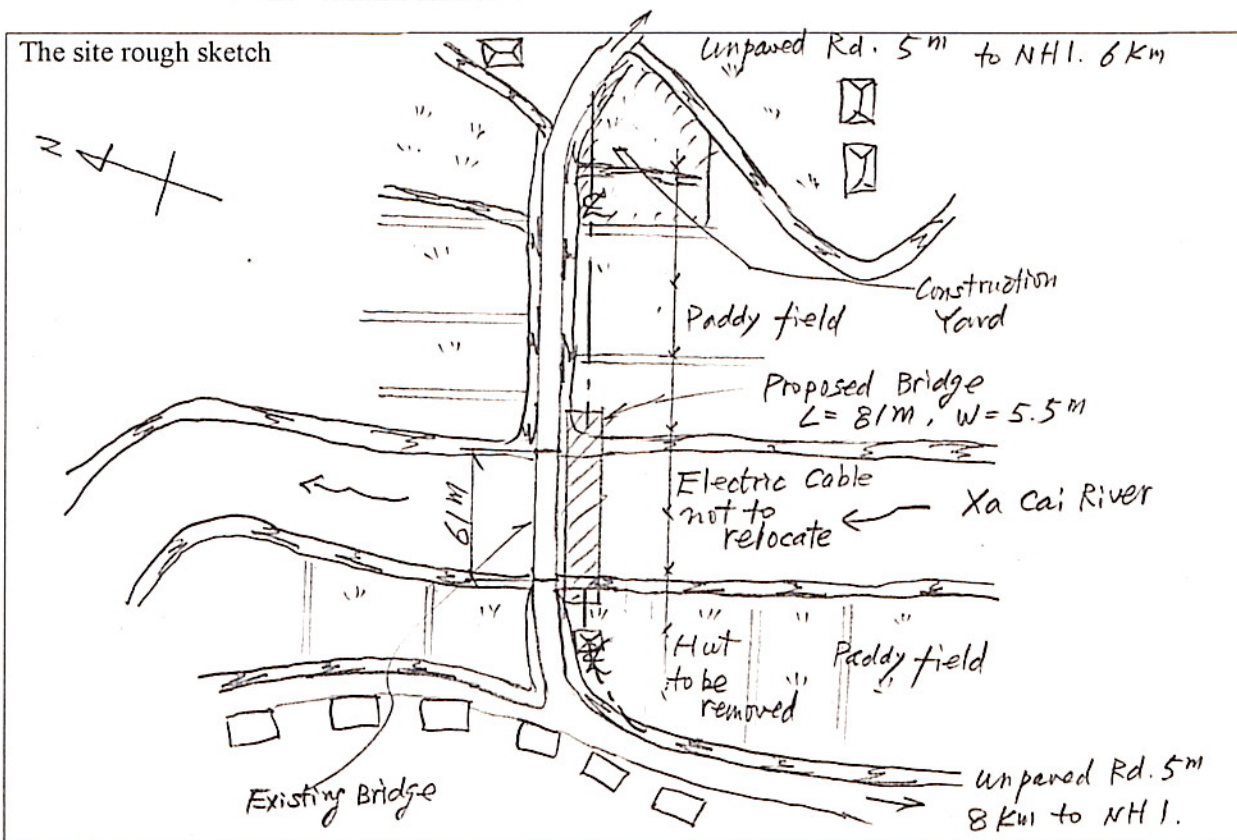 The site rough sketch
Unpaved Rd. 5m to NH1. 6 Km
N
Construction
Yard
Paddy field
Proposed Bridge
L= 81m, W=5.5m
61m
Electric Cable
not to
relocate
Xa Cai River
Hut
to be
removed
Paddy field
Existing Bridge
Unpaved Rd. 5m
8 Km to NH 1.